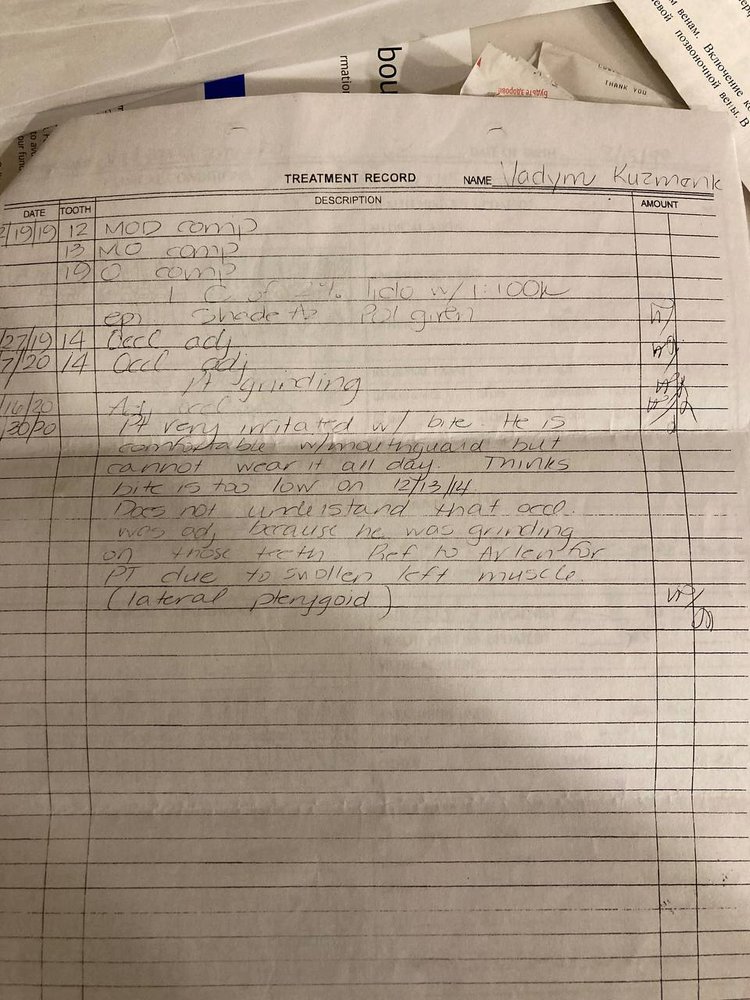 bou
rmation
THANK YOU
Будьте здоровы
м венам. Включение
позвоночной вены. В
TREATMENT RECORD NAME Vadym Kuzmenk
DATE TOOTH DESCRIPTION AMOUNT
/19/19 12 MOD comp
13 MO comp
19 O comp
1 C of 2% lido w/1:100k
epi Shade A2 POI given
27/19 14 Occl adj
7/20 14 Occl adj
Pt grinding
/16/20 Adj occl
30/20 Pt very irritated w/ bite. He is
comfortable w/mouthguard but
cannot wear it all day. Thinks
bite is too low on 12/13/14
Does not understand that occl.
was adj because he was grinding
on those teeth. Ref to Arlen for
PT due to swollen left muscle.
(lateral pterygoid)